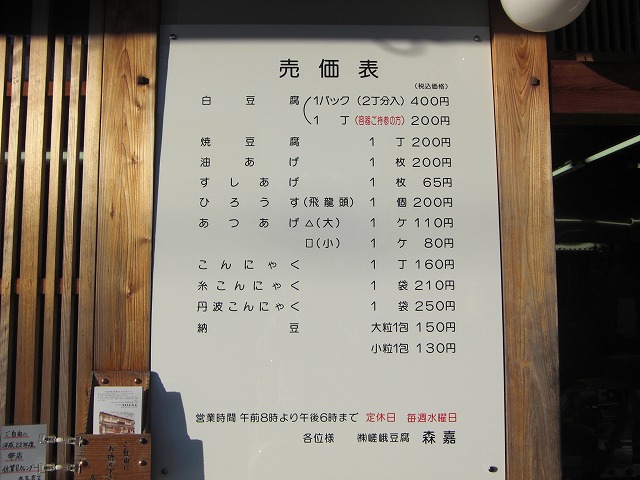 売価表
(税込価格)
白豆腐 1パック(2丁分入) 400円
1丁(容器ご持参の方) 200円
焼豆腐 1丁 200円
油あげ 1枚 200円
すしあげ 1枚 65円
ひろうす(飛龍頭) 1個 200円
あつあげ △(大) 1ケ 110円
□(小) 1ケ 80円
こんにゃく 1丁 160円
糸こんにゃく 1袋 210円
丹波こんにゃく 1袋 250円
納豆 大粒1包 150円
小粒1包 130円
営業時間 午前8時より午後6時まで 定休日 毎週水曜日
各位様 ㈱嵯峨豆腐 森嘉
ご自由に
平成22年度
ご自由に